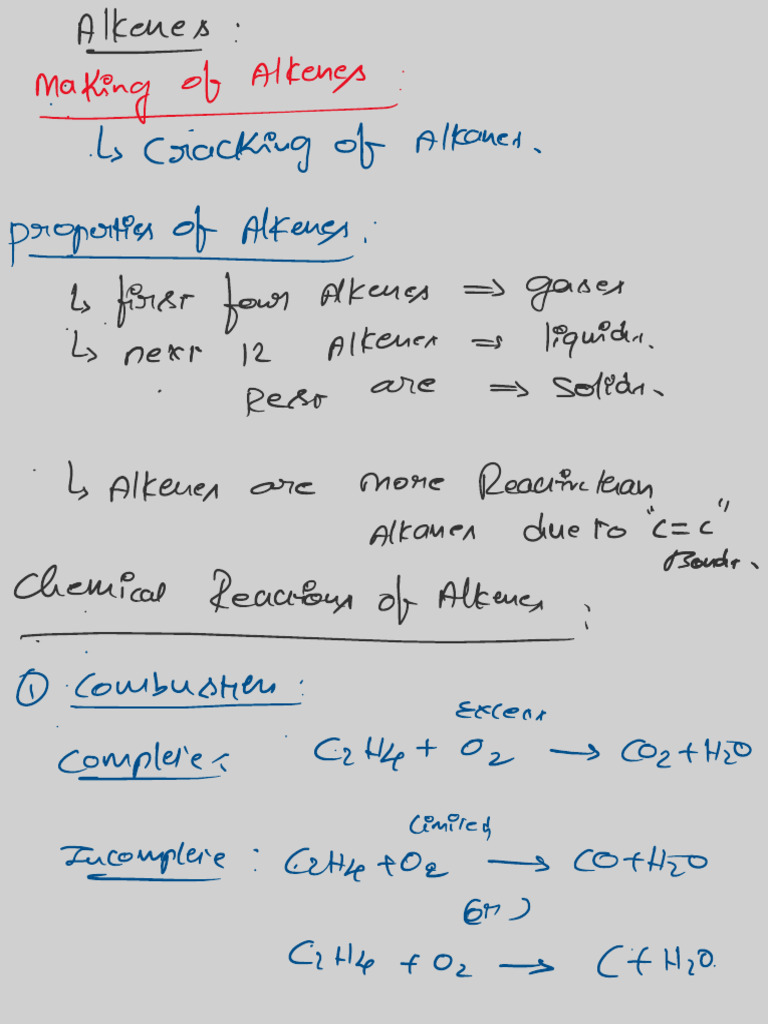 Alkenes :
Making of Alkenes :
↳ Cracking of Alkanes.
properties of Alkenes :
↳ first four Alkenes ⇒ gases
↳ next 12 Alkenes ⇒ liquids.
Rest are ⇒ Solids.
↳ Alkenes are more Reactive than
Alkanes due to "C=C"
Bonds.
Chemical Reactions of Alkenes :
① Combustion :
Excess
Complete : C2H4 + O2 → CO2 + H2O
Limited
Incomplete : C2H4 + O2 → CO + H2O
(or)
C2H4 + O2 → C + H2O.